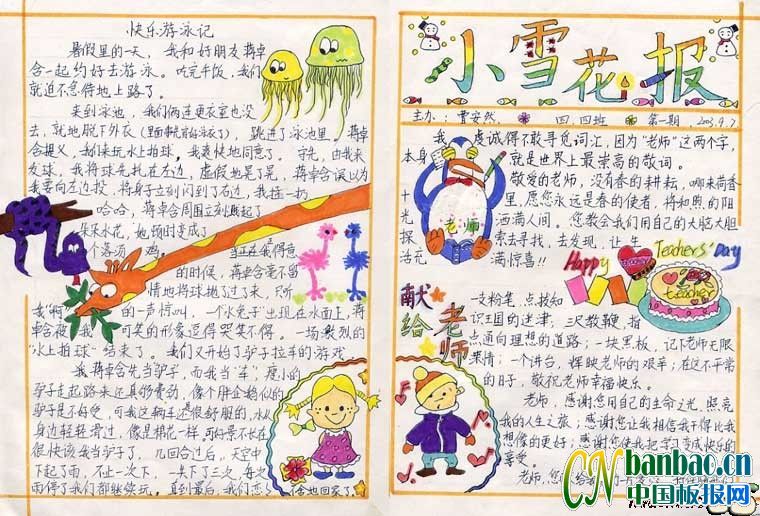 快乐游泳记
暑假里的一天，我和好朋友蒋卓
含一起约好去游泳。吃完午饭，我们
就迫不急待地上路了。
来到泳池，我们俩连更衣室也没
去，就地脱下外衣（里面
跳进了泳池里。蒋卓
含提义，我们来玩水上拍球，我爽快地同意了。
球，我将球先扎在左边，虚假地晃了晃，蒋卓含误以为
我要向左边投，将身子立刻闪到了右边，我猛一扔
哈哈，蒋卓含周围立刻溅起了
朵朵水花，她顿时变成了
个落汤鸡。当正在我得意
的时候，蒋卓含毫不留
情地将球抛了过了来，只听
我"啊"的一声惊叫，一个"水兔子"出现在水面上，蒋
卓含被我可笑的形象逗得哭笑不得。一场激烈的
"水上拍球"结束了。我们又开始了驴子拉车的游戏
蒋卓含先当驴子，而我当"车"，瘦小的
驴子走起路来还真够费劲，像个胖企鹅似的
驴子是不好受，可我这辆车还是很舒服的，水从
身边轻轻滑过，像是棉花一样。可好景不长在
很快该我当驴子了，几回合过后，天空中
下起了雨，不止一次下，一共下了三次，每次
雨停了我们都继续玩。直到最后，我们恋
舍地回家了
小雪花报
主办：曹安然
四.四班
第一期
2003.9.7
我虔诚得不敢寻觅词汇，因为"老师"这两个字，
本身就是世界上最崇高的敬词。
敬爱的老师，没有春的耕耘，哪来荷香
十里，愿您永远是春的使者，将和煦的阳
光洒满人间。您教会我们用自己的大脑大胆
探索去寻找，去发现，让生
活充满惊喜!!
老师
Happy Teachers' Day
teacher
献给老师
一支粉笔，点拨知
识王国的迷津；三尺教鞭，指
点通向理想的道路；一块黑板，记下老师无限
深情；一个讲台，辉映老师的艰辛；在这不平常
的日子，敬祝老师幸福快乐。
老师，感谢您用自己的生命之光，照亮
我的人生之旅；感谢您让我相信我干得比我
想像的更好；感谢您使我把学习变成快乐的
享受。
老师，您
CN banbao.cn
中国板报网